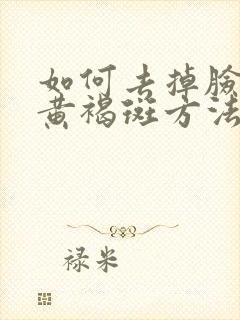 如何去掉臉
黃褐斑方法
禄米